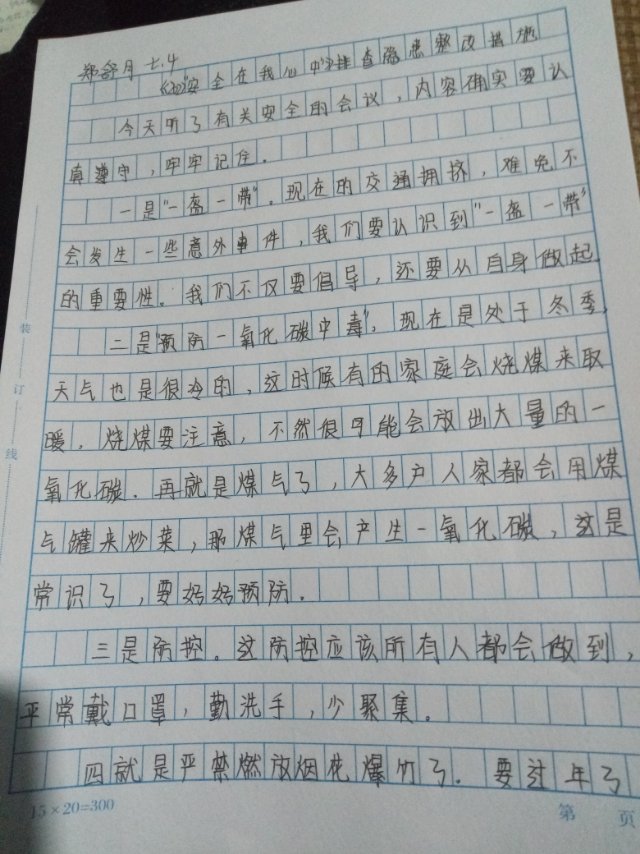 郑舒月 七.4
《"安全在我心中"》排查隐患整改措施
今天听了有关安全的会议，内容确实要认
真遵守，牢牢记住。
一是"一盔一带"。现在的交通拥挤，难免不
会发生一些意外事件，我们要认识到"一盔一带"
的重要性。我们不仅要倡导，还要从自身做起。
二是"预防一氧化碳中毒"，现在是处于冬季，
天气也是很冷的，这时候有的家庭会烧煤来取
暖．烧煤要注意，不然很可能会放出大量的一
氧化碳．再就是煤气了，大多户人家都会用煤
气罐来炒菜，那煤气里会产生一氧化碳，这是
常识了，要好好预防．
三是防控。这防控应该所有人都会做到，
平常戴口罩，勤洗手，少聚集。
四就是严禁燃放烟花爆竹了．要过年了
装
订
线
15×20=300
第 页